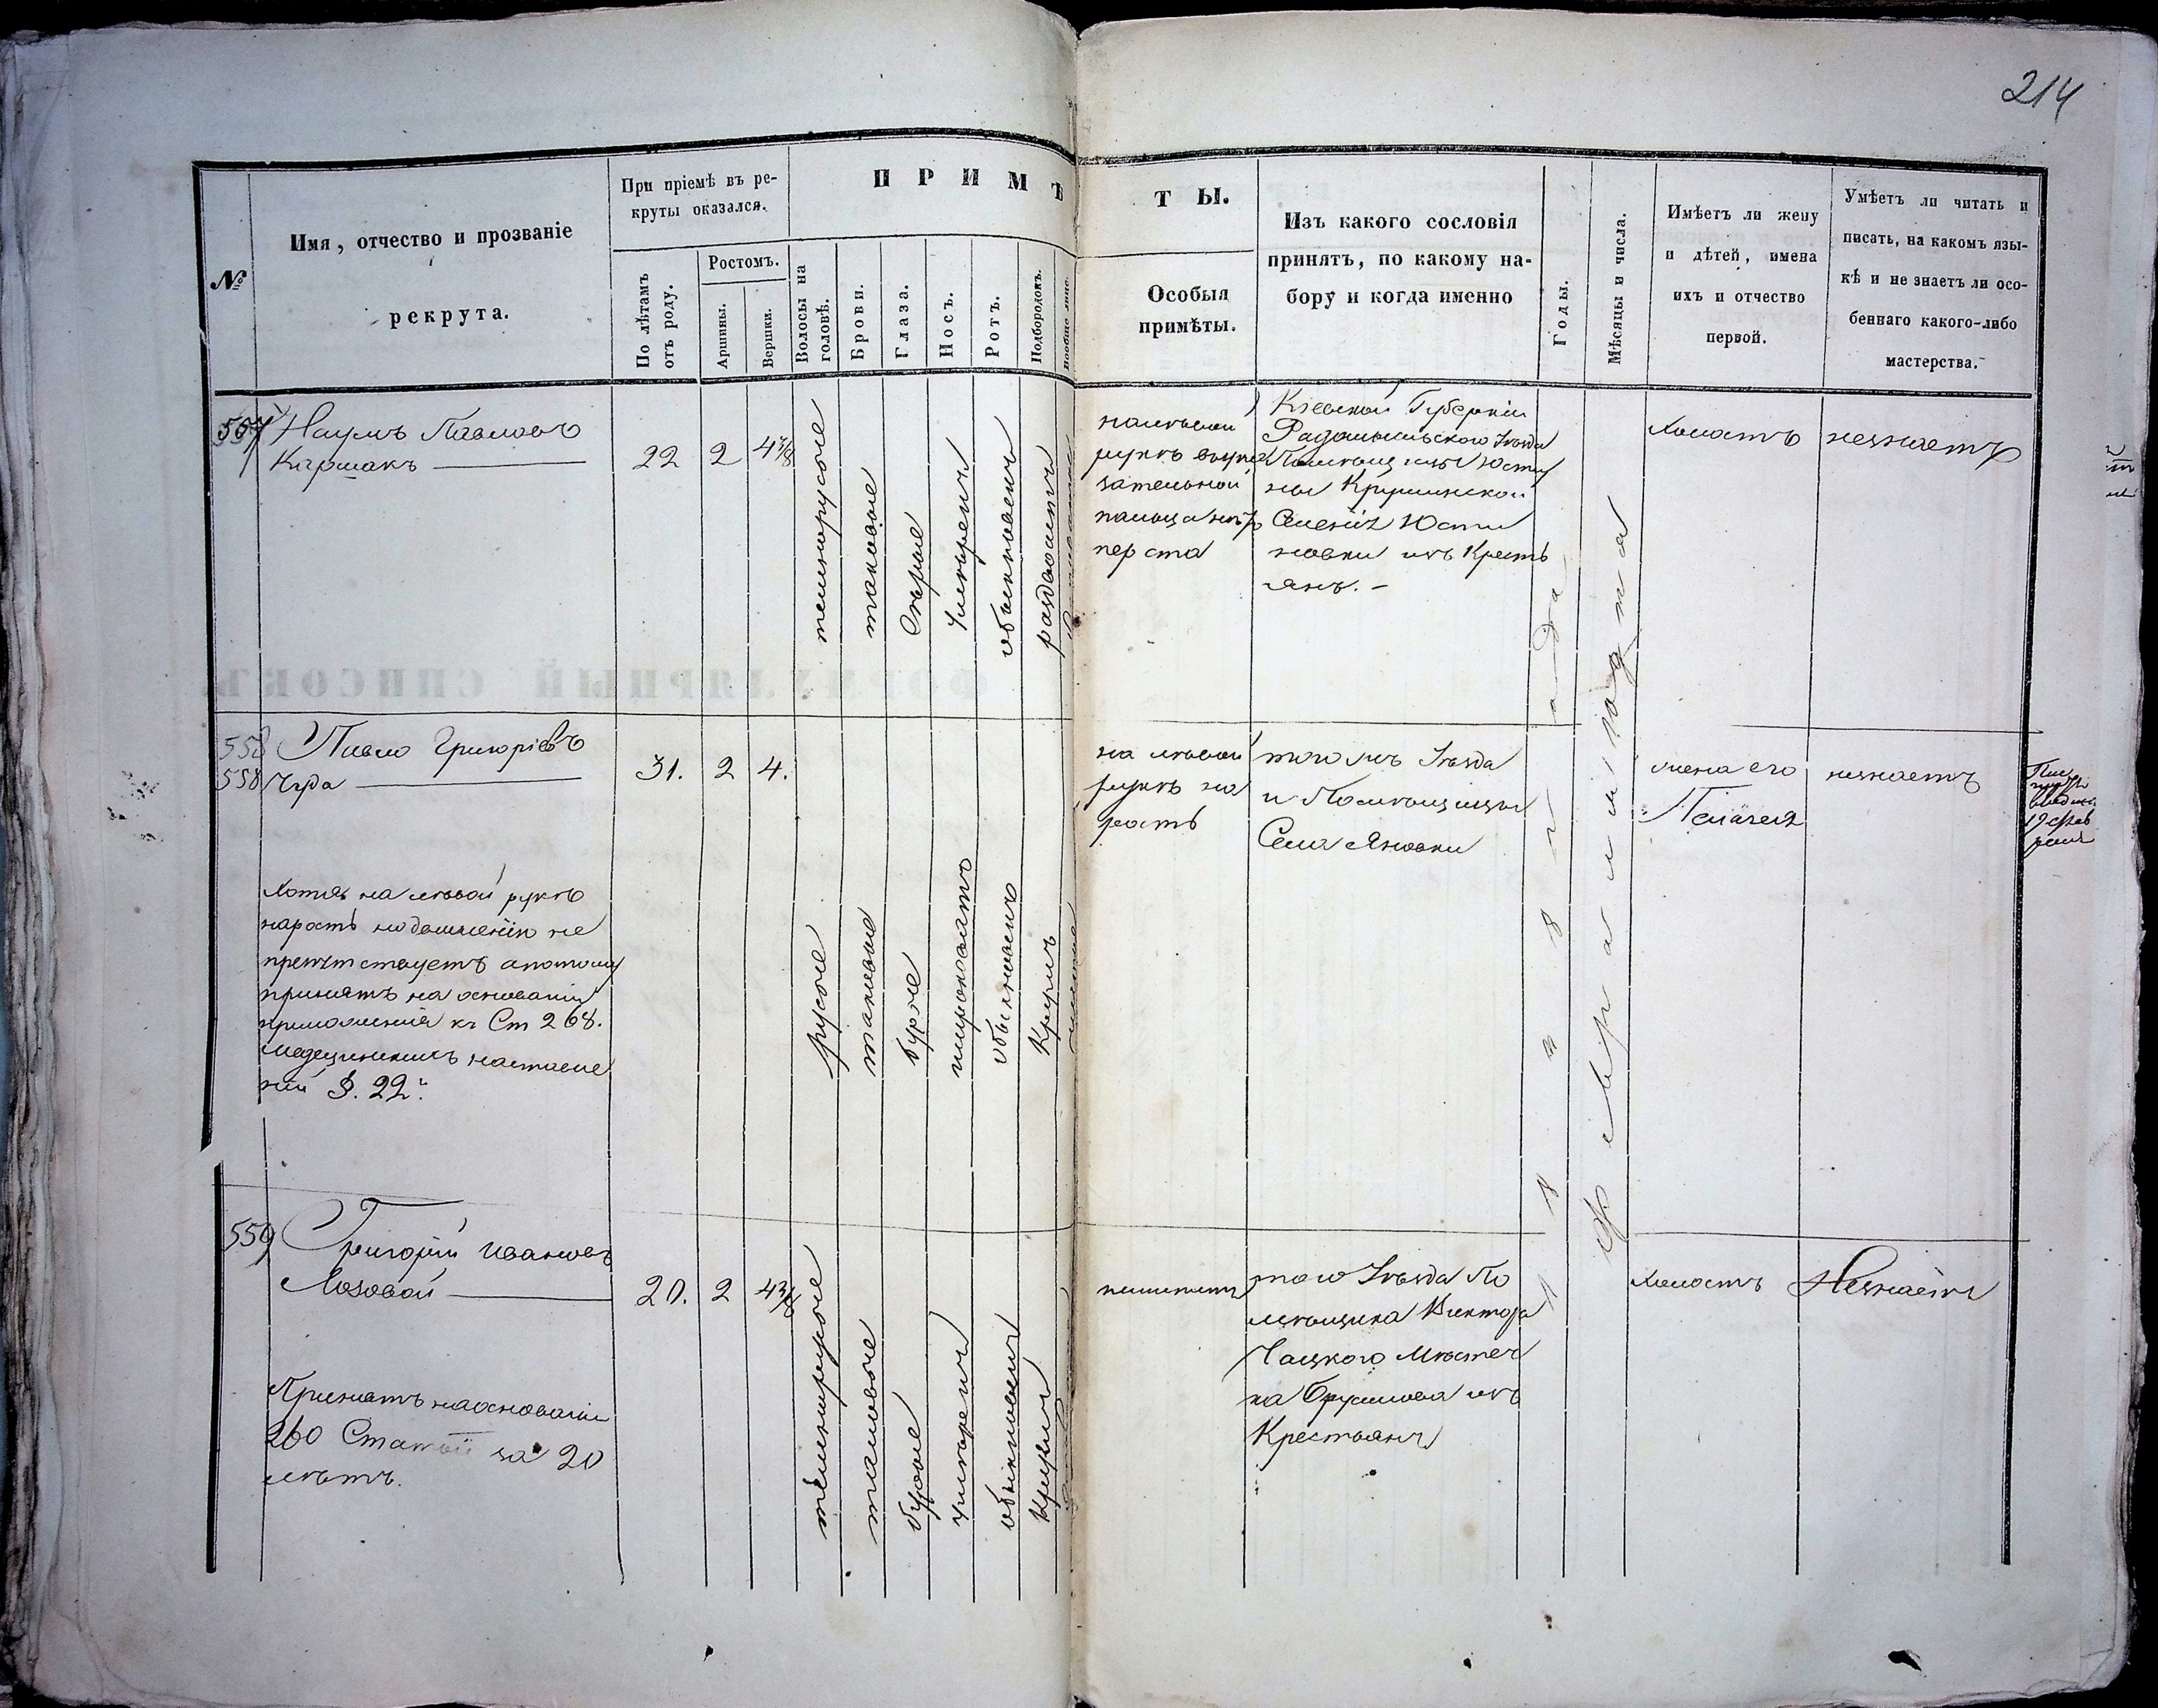 214
№
Имя, отчество и прозваніе
рекрута.
При пріемѣ въ ре-
круты оказался.
По лѣтамъ
отъ роду.
Ростомъ.
Аршины.
Вершки.
ПРИМѢ
ТЫ.
Волосы на
головѣ.
Брови.
Глаза.
Носъ.
Ротъ.
Подбородокъ.
Вообще лице.
Особыя
примѣты.
Изъ какого сословія
принятъ, по какому на-
бору и когда именно
Годы.
Мѣсяцы и числа.
Имѣетъ ли жену
и дѣтей, имена
ихъ и отчество
первой.
Умѣетъ ли читать и
писать, на какомъ язы-
кѣ и не знаетъ ли осо-
беннаго какого-либо
мастерства.
557
Наумъ Павловъ
Каршакъ
22
2
4 3/8
темнорусые
таковые
Сѣрые
Умѣренъ
обыкновенъ
раздвоитъ
на лѣвой
рукѣ
зательной
пальца
перста
Кіевской Губерніи
Радомысльскаго Уѣзда
Помѣщицы Юсти
ны Крушинской
Селенія Юсти
новки изъ Кресть
янъ. -
Холостъ
незнаетъ
558
558
Павло Григоріевъ
Чуба
31.
2
4.
русые
таковые
бурые
широковатъ
обыкновенъ
Круглъ
на лѣвой
рукѣ на
ростъ
того жъ Уѣзда
и Помѣщицы
Села Яновки
жена его
Пелагея
незнаетъ
Хотя на лѣвой рукѣ
наростъ но движенію не
препятствуетъ а потому
принятъ на основаніи
приложенія къ Ст 268.
Медецинскихъ наставле
ній §. 22:
559
Григорій Ивановъ
Лозовой
20.
2
4 3/8
темнорусые
таковые
бурые
умѣренъ
обыкновенъ
Круглъ
неимѣетъ
того Уѣзда По
мѣщика Виктора
Чацкого Мѣстеч
ка Брусилова изъ
Крестьянъ
Холостъ
Незнаетъ
Принятъ на основаніи
260 Статьи за 20
лѣтъ.
года
февраля